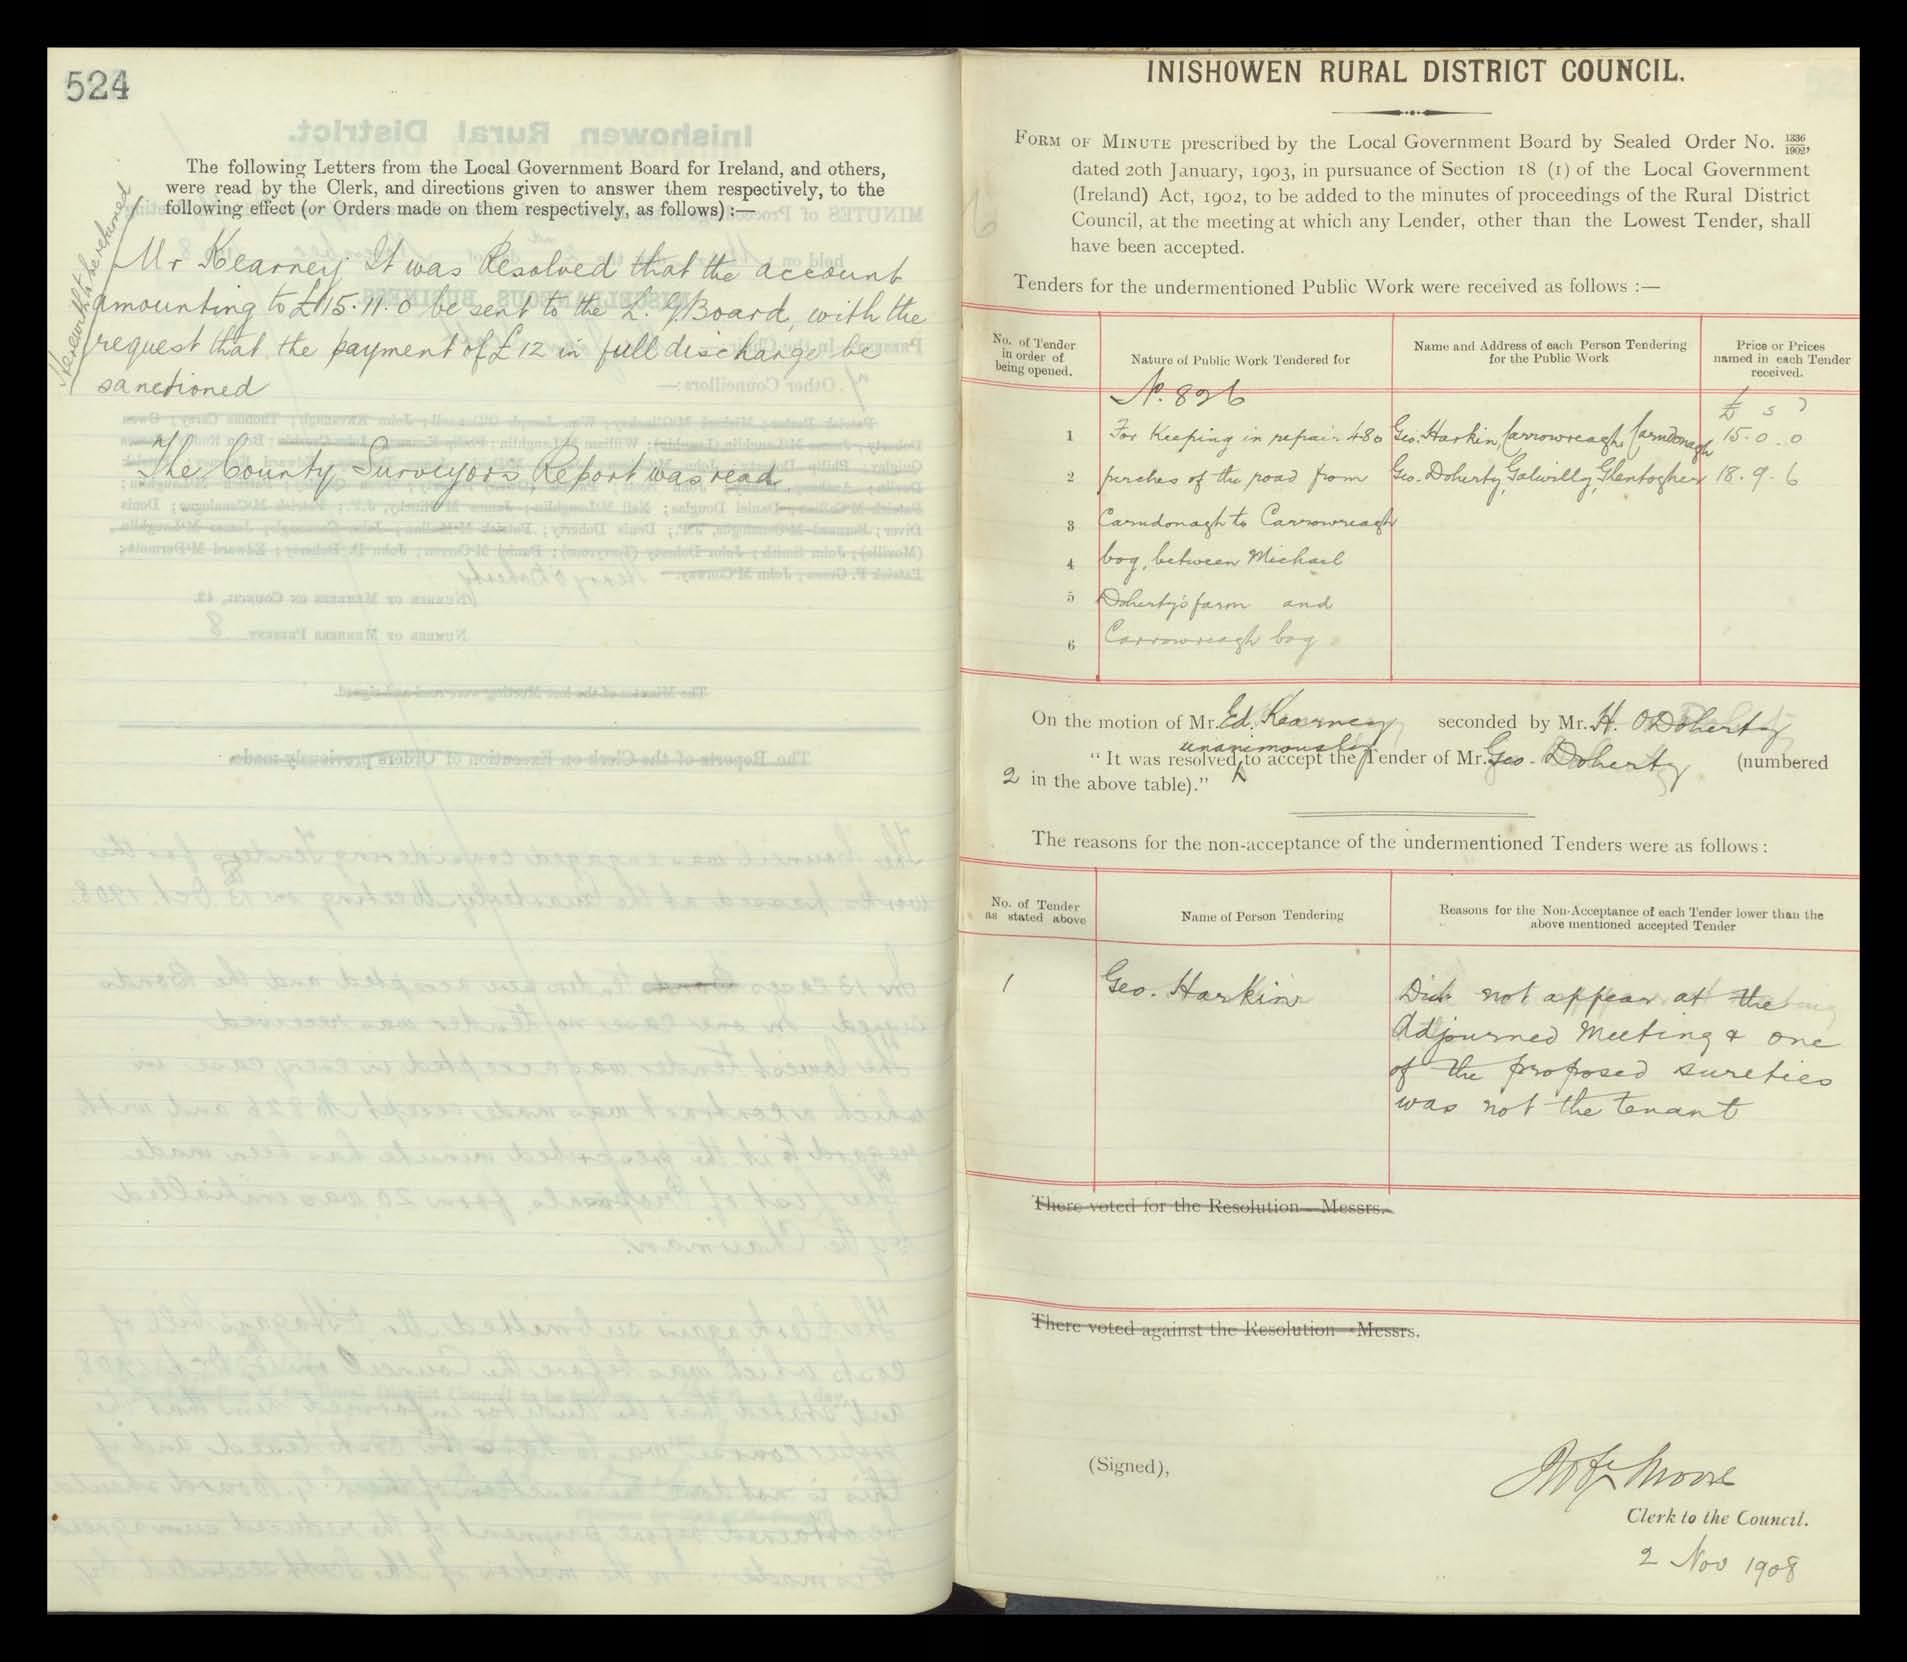 524
The following Letters from the Local Government Board for Ireland, and others,
were read by the Clerk, and directions given to answer them respectively, to the
following effect (or Orders made on them respectively, as follows) :—
Herewith to be returned
Mr Kearney. It was Resolved that the account
amounting to £115.11.0 be sent to the L. G. Board, with the
request that the payment of £12 in full discharge be
sanctioned
The County Surveyor's Report was read.
INISHOWEN RURAL DISTRICT COUNCIL.
FORM OF MINUTE prescribed by the Local Government Board by Sealed Order No. 1336/1902,
dated 20th January, 1903, in pursuance of Section 18 (1) of the Local Government
(Ireland) Act, 1902, to be added to the minutes of proceedings of the Rural District
Council, at the meeting at which any Lender, other than the Lowest Tender, shall
have been accepted.
Tenders for the undermentioned Public Work were received as follows :—
No. of Tender in order of being opened. Nature of Public Work Tendered for Name and Address of each Person Tendering for the Public Work Price or Prices named in each Tender received.
No. 826
£ s
1 For Keeping in repair 480 Geo. Harkin, Carrowreagh, Carndonagh 15.0.0
2 perches of the road from Geo. Doherty, Galwilly, Glentogher 18.9.6
3 Carndonagh to Carrowreagh
4 bog, between Michael
5 Doherty's farm and
6 Carrowreagh bog
On the motion of Mr. Ed. Kearney seconded by Mr. H. O'Doherty
"It was resolved unanimously to accept the Tender of Mr. Geo. Doherty (numbered
2 in the above table)."
The reasons for the non-acceptance of the undermentioned Tenders were as follows :
No. of Tender as stated above Name of Person Tendering Reasons for the Non-Acceptance of each Tender lower than the above mentioned accepted Tender
1 Geo. Harkin Did not appear at the
Adjourned Meeting & one
of the proposed sureties
was not the tenant
There voted for the Resolution—Messrs.
There voted against the Resolution—Messrs.
(Signed),
Moore
Clerk to the Council.
2 Nov 1908